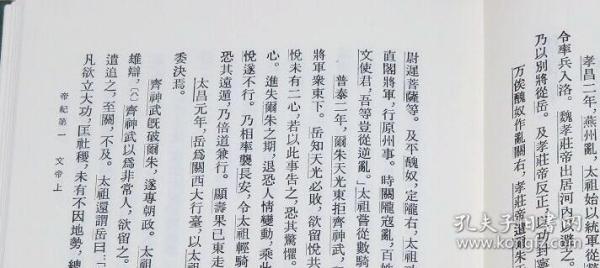 孝昌二年,燕州亂,太祖始以統軍從
令率兵入洛。魏孝莊帝出居河內以避之。
乃以別將從岳。及孝莊帝反正,以功封寧
万俟醜奴作亂關右,孝莊帝遣
尉遲菩薩等。及平醜奴,定隴右,太祖
直閣將軍,行原州事。時關隴寇亂,百姓
文使君,吾等豈從逆亂。」太祖嘗從數騎
普泰二年,爾朱天光東拒齊神武,
將軍衆東下。岳知天光必敗,欲留悅共
悅未有二心,若以此事告之,恐其驚懼。
心。進失爾朱之期,退恐人情變動,乘此
悅遂不行。乃相率襲長安,令太祖輕騎
恐其遠遁,乃倍道兼行。顯壽果已東走
太昌元年,岳爲關西大行臺,以太
委決焉。
齊神武旣破爾朱,遂專朝政。太祖
雄辯,〔八〕齊神武以爲非常人,欲留之。
遣追之,至關,不及。太祖還謂岳曰:「
凡欲立大功,匡社稷,未有不因地勢,總
帝紀第一 文帝上
孔夫子旧书网